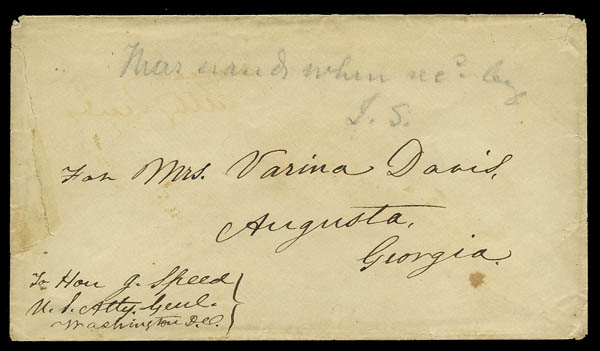 Thus marked when rec'd by
J. S.
For Mrs. Varina Davis,
Augusta,
Georgia.
To Hon J. Speed
U. S. Atty. Genl.
Washington D.C.